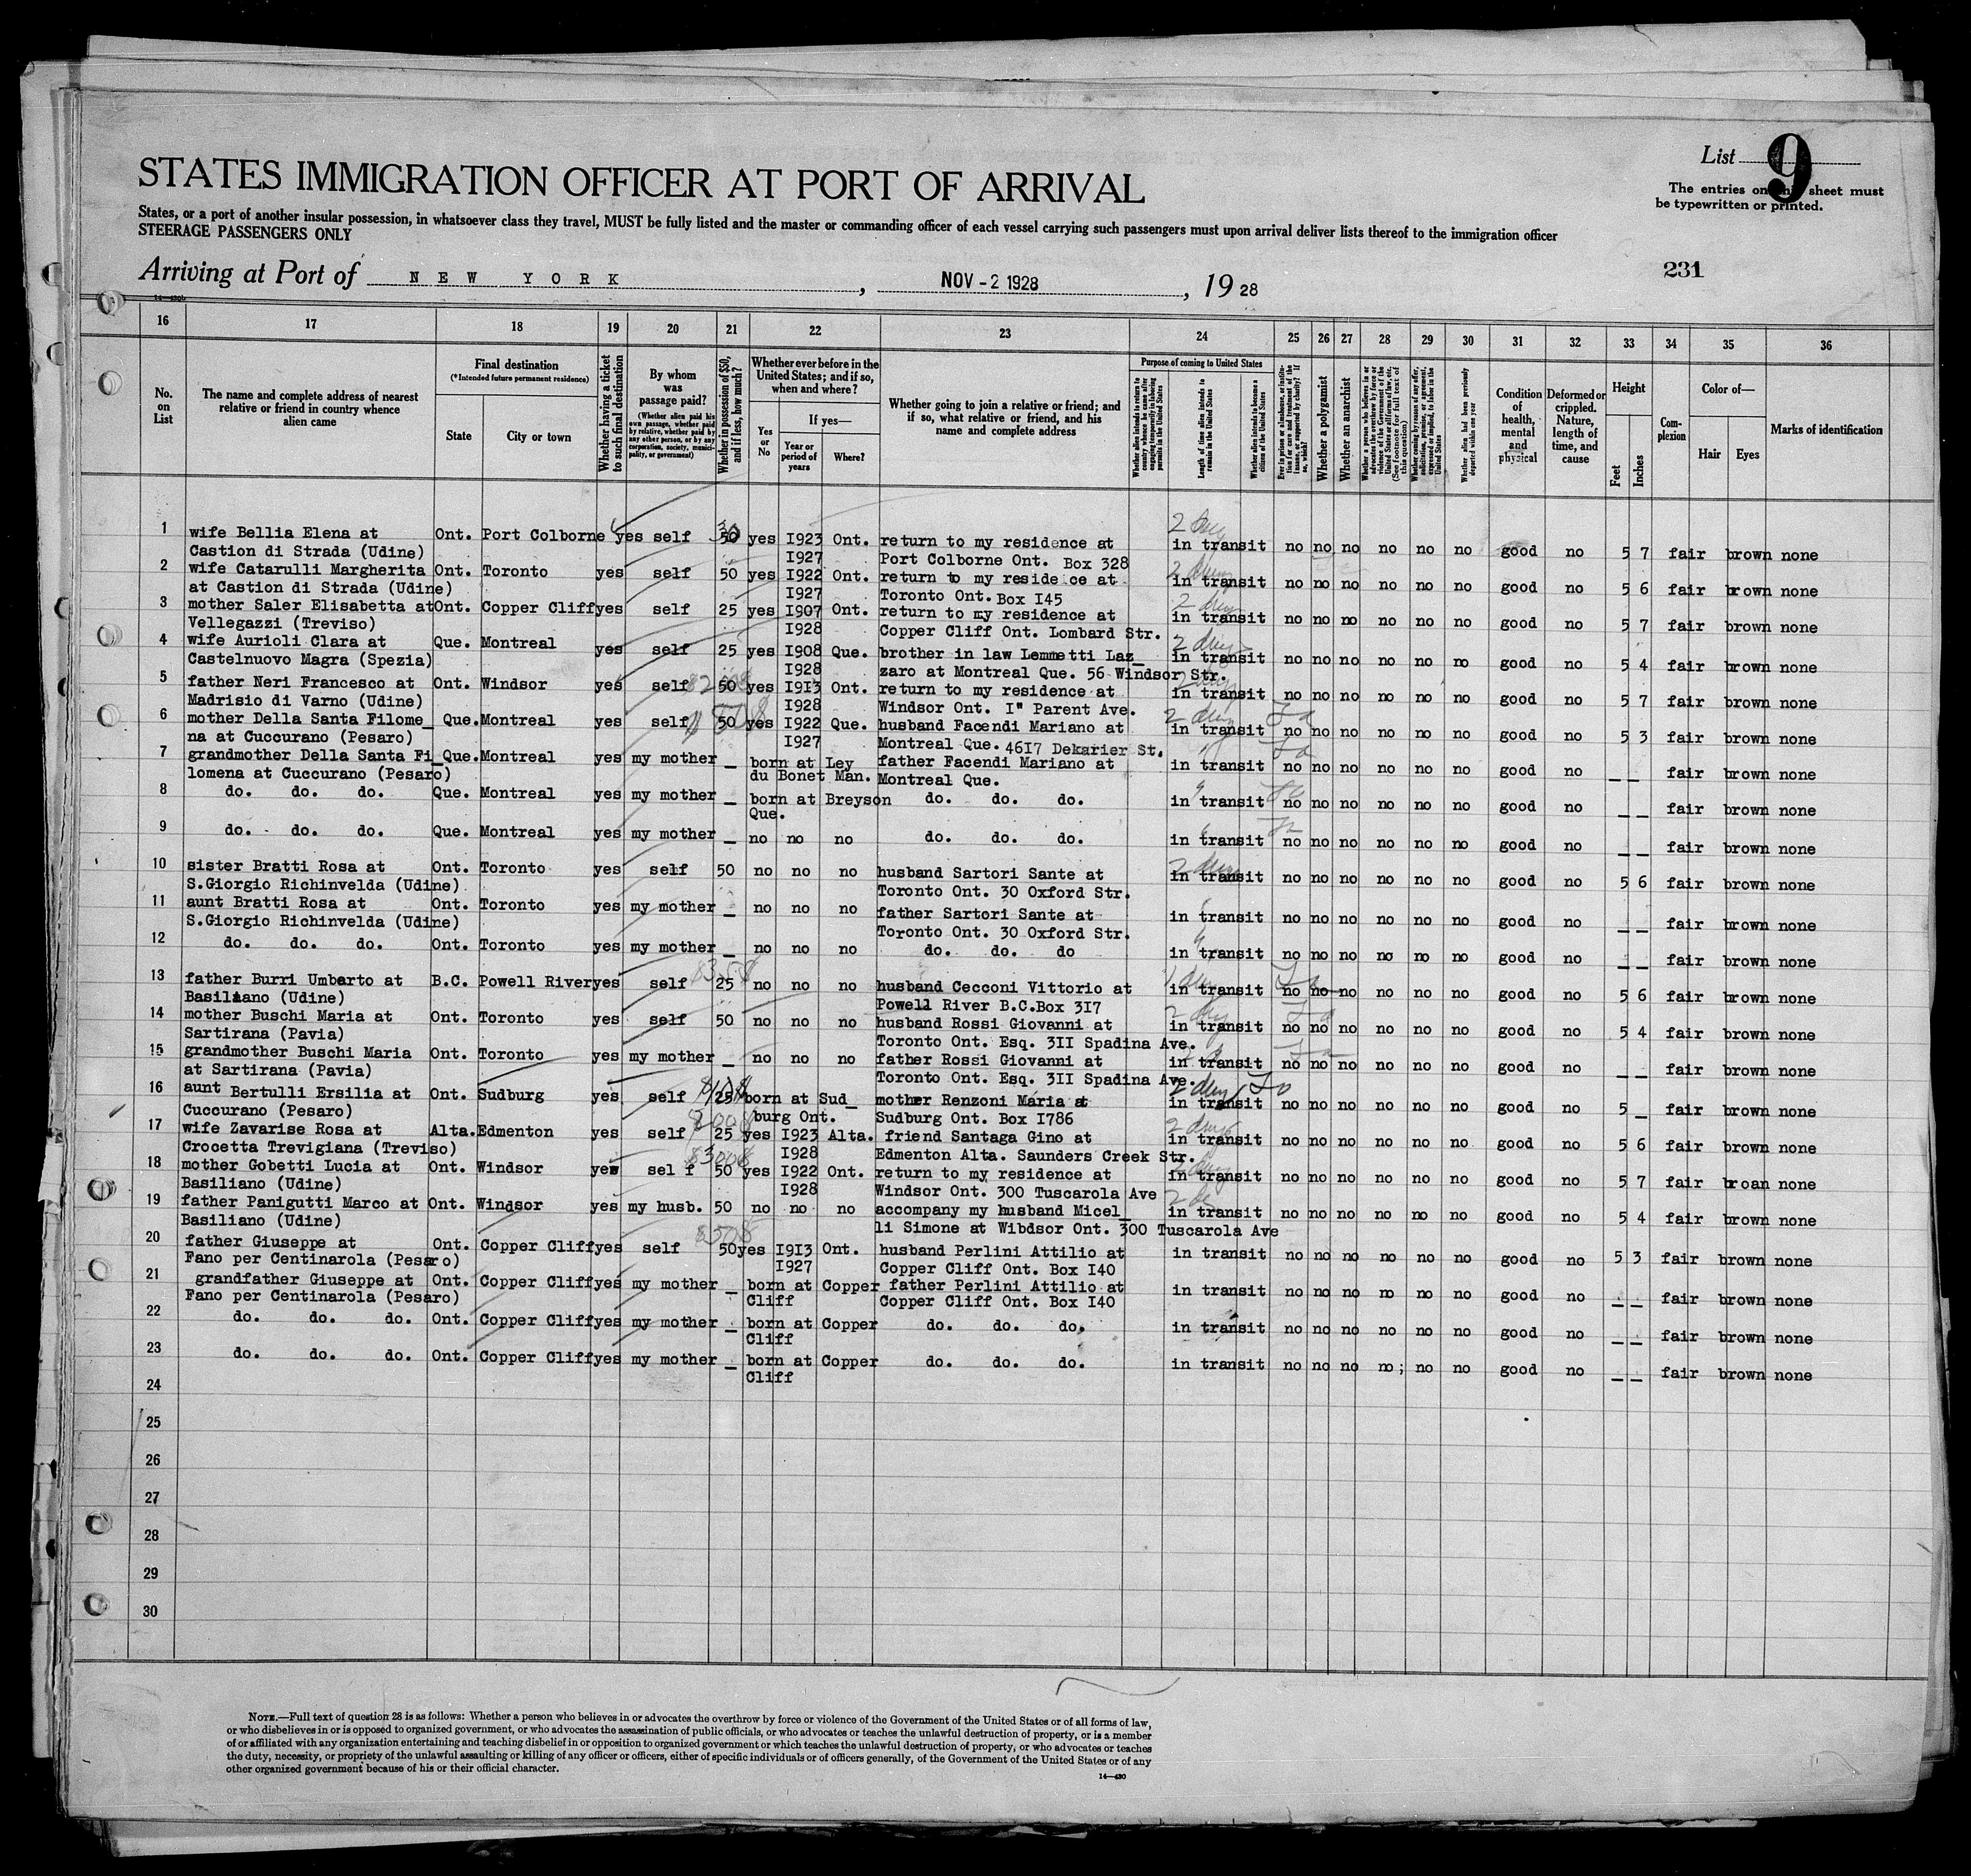 List 9
STATES IMMIGRATION OFFICER AT PORT OF ARRIVAL
The entries on this sheet must
be typewritten or printed.
States, or a port of another insular possession, in whatsoever class they travel, MUST be fully listed and the master or commanding officer of each vessel carrying such passengers must upon arrival deliver lists thereof to the immigration officer
STEERAGE PASSENGERS ONLY
231
Arriving at Port of NEW YORK, NOV - 2 1928, 19 28
16 17 18 19 20 21 22 23 24 25 26 27 28 29 30 31 32 33 34 35 36
No. on List
The name and complete address of nearest relative or friend in country whence alien came
Final destination (*Intended future permanent residence)
State
City or town
Whether having a ticket to such final destination
By whom was passage paid? (Whether alien paid his own passage, whether paid by relative, whether paid by any other person, or by any corporation, society, municipality, or government)
Whether in possession of $50, and if less, how much?
Whether ever before in the United States; and if so, when and where?
Yes or No
If yes—
Year or period of years
Where?
Whether going to join a relative or friend; and if so, what relative or friend, and his name and complete address
Purpose of coming to United States
Length of time alien intends to remain in the United States
Whether alien intends to become a citizen of the United States
Whether a polygamist
Whether an anarchist
Condition of health, mental and physical
Deformed or crippled. Nature, length of time, and cause
Height
Feet
Inches
Complexion
Color of—
Hair
Eyes
Marks of identification
1 wife Bellia Elena at Ont. Port Colborne yes self 50 yes I923 Ont. return to my residence at in transit no no no no no no good no 5 7 fair brown none
Castion di Strada (Udine) I927 Port Colborne Ont. Box 328
2 wife Catarulli Margherita Ont. Toronto yes self 50 yes I922 Ont. return to my reside ce at in transit no no no no no no good no 5 6 fair brown none
at Castion di Strada (Udine) I927 Toronto Ont. Box I45
3 mother Saler Elisabetta at Ont. Copper Cliff yes self 25 yes I907 Ont. return to my residence at in transit no no no no no no good no 5 7 fair brown none
Vellegazzi (Treviso) I928 Copper Cliff Ont. Lombard Str.
4 wife Aurioli Clara at Que. Montreal yes self 25 yes I908 Que. brother in law Lemmetti Laz_ in transit no no no no no no good no 5 4 fair brown none
Castelnuovo Magra (Spezia) I928 zaro at Montreal Que. 56 Windsor Str.
5 father Neri Francesco at Ont. Windsor yes self 50 yes I9I3 Ont. return to my residence at in transit no no no no no no good no 5 7 fair brown none
Madrisio di Varno (Udine) I928 Windsor Ont. I" Parent Ave.
6 mother Della Santa Filome_ Que. Montreal yes self 50 yes I922 Que. husband Facendi Mariano at in transit no no no no no no good no 5 3 fair brown none
na at Cuccurano (Pesaro) I927 Montreal Que. 46I7 Dekarier St.
7 grandmother Della Santa Fi_ Que. Montreal yes my mother _ born at Ley father Facendi Mariano at in transit no no no no no no good no _ _ fair brown none
lomena at Cuccurano (Pesaro) du Bonet Man. Montreal Que.
8 do. do. do. Que. Montreal yes my mother _ born at Breyson do. do. do. in transit no no no no no no good no _ _ fair brown none
Que.
9 do. do. do. Que. Montreal yes my mother _ no no no do. do. do. in transit no no no no no no good no _ _ fair brown none
10 sister Bratti Rosa at Ont. Toronto yes self 50 no no no husband Sartori Sante at in transit no no no no no no good no 5 6 fair brown none
S.Giorgio Richinvelda (Udine) Toronto Ont. 30 Oxford Str.
11 aunt Bratti Rosa at Ont. Toronto yes my mother _ no no no father Sartori Sante at in transit no no no no no no good no _ _ fair brown none
S.Giorgio Richinvelda (Udine) Toronto Ont. 30 Oxford Str.
12 do. do. do. Ont. Toronto yes my mother _ no no no do. do. do in transit no no no no no no good no _ _ fair brown none
13 father Burri Umberto at B.C. Powell River yes self 25 no no no husband Cecconi Vittorio at in transit no no no no no no good no 5 6 fair brown none
Basiliano (Udine) Powell River B.C.Box 3I7
14 mother Buschi Maria at Ont. Toronto yes self 50 no no no husband Rossi Giovanni at in transit no no no no no no good no 5 4 fair brown none
Sartirana (Pavia) Toronto Ont. Esq. 3II Spadina Ave.
15 grandmother Buschi Maria Ont. Toronto yes my mother _ no no no father Rossi Giovanni at in transit no no no no no no good no _ _ fair brown none
at Sartirana (Pavia) Toronto Ont. Esq. 3II Spadina Ave.
16 aunt Bertulli Ersilia at Ont. Sudburg yes self 25 born at Sud_ mother Renzoni Maria at in transit no no no no no no good no 5 _ fair brown none
Cuccurano (Pesaro) burg Ont. Sudburg Ont. Box I786
17 wife Zavarise Rosa at Alta. Edmenton yes self 25 yes I923 Alta. friend Santaga Gino at in transit no no no no no no good no 5 6 fair brown none
Crocetta Trevigiana (Treviso) I928 Edmenton Alta. Saunders Creek Str.
18 mother Gobetti Lucia at Ont. Windsor yes sel f 50 yes I922 Ont. return to my residence at in transit no no no no no no good no 5 7 fair broan none
Basiliano (Udine) I928 Windsor Ont. 300 Tuscarola Ave
19 father Panigutti Marco at Ont. Windsor yes my husb. 50 no no no accompany my husband Micel_ in transit no no no no no no good no 5 4 fair brown none
Basiliano (Udine) li Simone at Wibdsor Ont. 300 Tuscarola Ave
20 father Giuseppe at Ont. Copper Cliff yes self 50 yes I9I3 Ont. husband Perlini Attilio at in transit no no no no no no good no 5 3 fair brown none
Fano per Centinarola (Pesaro) I927 Copper Cliff Ont. Box I40
21 grandfather Giuseppe at Ont. Copper Cliff yes my mother _ born at Copper father Perlini Attilio at in transit no no no no no no good no _ _ fair brown none
Fano per Centinarola (Pesaro) Cliff Copper Cliff Ont. Box I40
22 do. do. do. Ont. Copper Cliff yes my mother _ born at Copper do. do. do. in transit no no no no no no good no _ _ fair brown none
Cliff
23 do. do. do. Ont. Copper Cliff yes my mother _ born at Copper do. do. do. in transit no no no no; no no good no _ _ fair brown none
Cliff
24
25
26
27
28
29
30
NOTE.—Full text of question 28 is as follows: Whether a person who believes in or advocates the overthrow by force or violence of the Government of the United States or of all forms of law,
or who disbelieves in or is opposed to organized government, or who advocates the assassination of public officials, or who advocates or teaches the unlawful destruction of property, or is a member
of or affiliated with any organization entertaining and teaching disbelief in or opposition to organized government or which teaches the unlawful destruction of property, or who advocates or teaches
the duty, necessity, or propriety of the unlawful assaulting or killing of any officer or officers, either of specific individuals or of officers generally, of the Government of the United States or of any
other organized government because of his or their official character.
14—430